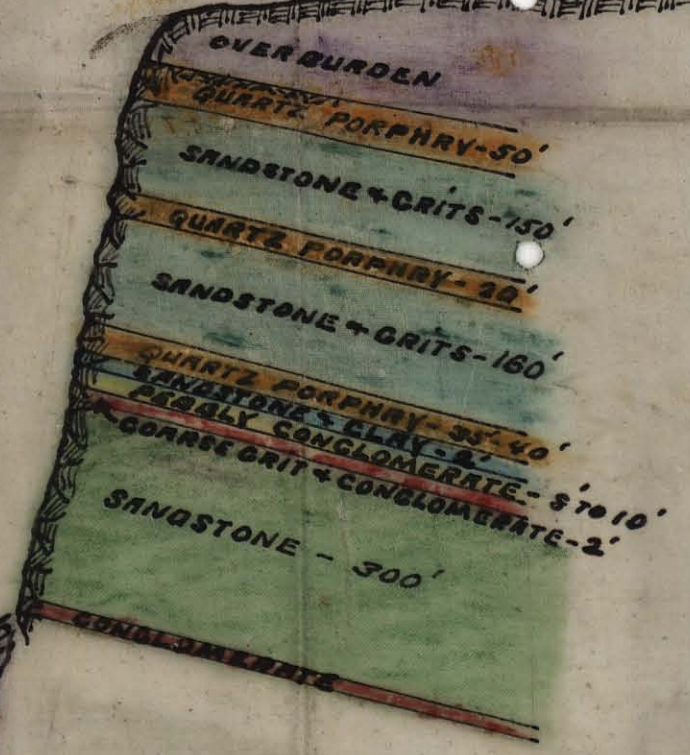 OVERBURDEN
QUARTZ PORPHRY-50'
SANDSTONE & GRITS-150'
QUARTZ PORPHRY-20'
SANDSTONE & GRITS-160'
QUARTZ PORPHRY-35'-40'
SANDSTONE & CLAY-2'
PEBBLY CONGLOMERATE-8' TO 10'
COARSE GRIT & CONGLOMERATE-2'
SANDSTONE - 300'
CONGLOMERATE